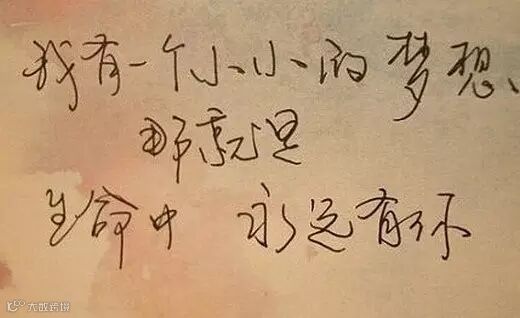 我有一个小小的梦想、
那就是
生命中 永远有你
大数跨境